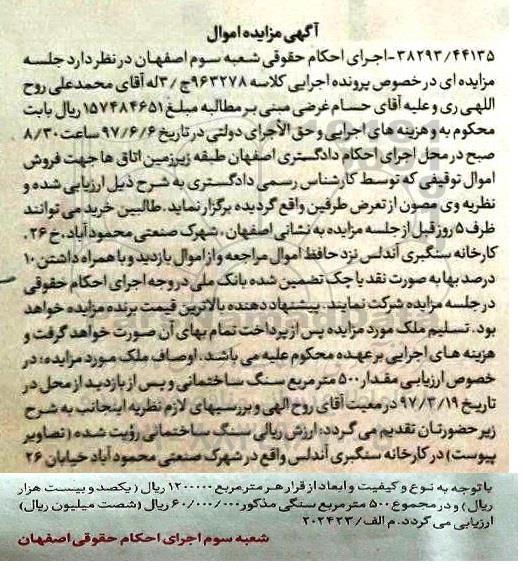 آگهی مزایده اموال
۳۸۲۹۳/۴۴۱۳۵-اجرای احکام حقوقی شعبه سوم اصفهان در نظر دارد جلسه
مزایده ای در خصوص پرونده اجرایی کلاسه ۹۶۳۲۷۸ج/۳له آقای محمدعلی روح
اللهی ری و علیه آقای حسام غرضی مبنی بر مطالبه مبلغ ۱۵۷۴۸۴۶۵۱ ریال بابت
محکوم به و هزینه های اجرایی و حق الأجرای دولتی در تاریخ ۹۷/۶/۶ ساعت ۸/۳۰
صبح در محل اجرای احکام دادگستری اصفهان طبقه زیرزمین اتاق ها جهت فروش
اموال توقیفی که توسط کارشناس رسمی دادگستری به شرح ذیل ارزیابی شده و
نظریه وی مصون از تعرض طرفین واقع گردیده برگزار نماید. طالبین خرید می توانند
ظرف ۵ روز قبل از جلسه مزایده به نشانی اصفهان، شهرک صنعتی محمودآباد، خ ۲۶،
کارخانه سنگبری آندلس نزد حافظ اموال مراجعه و از اموال بازدید و با همراه داشتن ۱۰
درصد بها به صورت نقد یا چک تضمین شده بانک ملی در وجه اجرای احکام حقوقی
در جلسه مزایده شرکت نمایند. پیشنهاد دهنده بالاترین قیمت برنده مزایده خواهد
بود. تسلیم ملک مورد مزایده پس از پرداخت تمام بهای آن صورت خواهد گرفت و
هزینه های اجرایی بر عهده محکوم علیه می باشد. اوصاف ملک مورد مزایده: در
خصوص ارزیابی مقدار ۵۰۰ متر مربع سنگ ساختمانی و پس از بازدید از محل در
تاریخ ۹۷/۳/۱۹ در معیت آقای روح الهی و بررسیهای لازم نظریه اینجانب به شرح
زیر حضورتان تقدیم می گردد: ارزش ریالی سنگ ساختمانی رؤیت شده (تصاویر
پیوست) در کارخانه سنگبری آندلس واقع در شهرک صنعتی محمودآباد خیابان ۲۶
با توجه به نوع و کیفیت و ابعاد از قرار هر متر مربع ۱۲۰۰۰۰ ریال (یکصد و بیست هزار
ریال) و در مجموع ۵۰۰ متر مربع سنگی مذکور ۶۰/۰۰۰/۰۰۰ ریال (شصت میلیون ریال)
ارزیابی می گردد. م الف/۲۰۲۴۲۳
شعبه سوم اجرای احکام حقوقی اصفهان